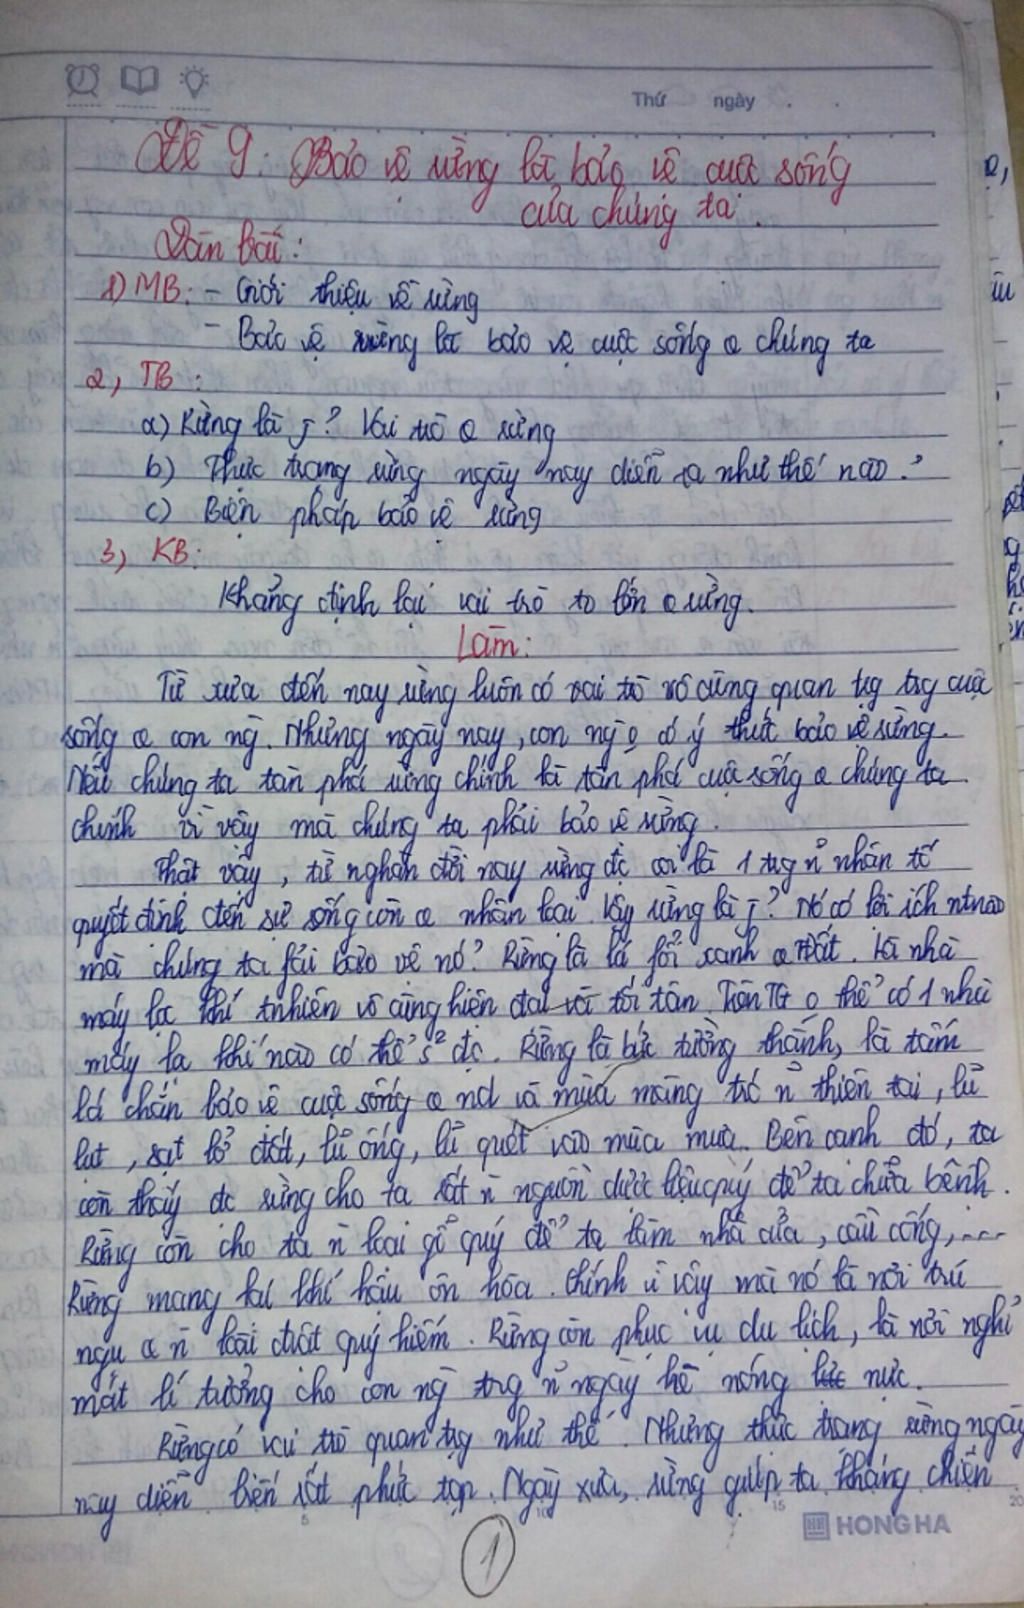 Thứ ngày
Đề 9: Bảo vệ rừng là bảo vệ cuộc sống
của chúng ta.
Dàn bài:
1) MB: - Giới thiệu về rừng
- Bảo vệ rừng là bảo vệ cuộc sống @ chúng ta
2, TB:
a) Rừng là j? Vai trò @ rừng
b) Thực trạng rừng ngày nay diễn ra như thế nào?
c) Biện pháp bảo vệ rừng
3, KB:
Khẳng định lại vai trò to lớn @ rừng.
Làm:
Từ xưa đến nay rừng luôn có vai trò vô cùng quan trg trg cuộc
sống @ con ng. Nhưng ngày nay, con ng o có ý thức bảo vệ rừng.
Nếu chúng ta tàn phá rừng chính là tàn phá cuộc sống @ chúng ta
chính vì vậy mà chúng ta phải bảo vệ rừng.
Thật vậy, từ nghàn đời nay rừng đc coi là 1 trg n~ nhân tố
quyết định đến sự sống còn @ nhân loại. Vậy rừng là j? Nó có lợi ích ntnào
mà chúng ta fải bảo vệ nó? Rừng là lá fổi xanh @ TĐất. Là nhà
máy lọc khí tnhiên vô cùng hiện đại và tối tân. Trên TG o thể có 1 nhà
máy lọc khí nào có thể s² đc. Rừng là bức tường thành, là tấm
lá chắn bảo vệ cuộc sống @ nd và mùa màng trc n~ thiên tai, lũ
lụt, sạt lở đất, lũ ống, lũ quét vào mùa mưa. Bên cạnh đó, ta
còn thấy đc rừng cho ta rất n` nguồn dược liệu quý để ta chữa bệnh.
Rừng còn cho ta n` loại gỗ quý để ta làm nhà cửa, cầu cống,....
Rừng mang lại khí hậu ôn hòa. Chính vì vậy mà nó là nơi trú
ngụ @ n` loài đvật quý hiếm. Rừng còn phục vụ du lịch, là nơi nghỉ
mát lí tưởng cho con ng trg n~ ngày hè nóng nực.
Rừng có vai trò quan trg như thế. Nhưng thực trạng rừng ngày
nay diễn biến rất phức tạp. Ngày xưa, rừng giúp ta kháng chiến
5 10 15 20
HONG HA
1